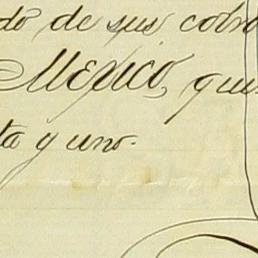 do de sus cobr
Mexico, qui
ta y uno.